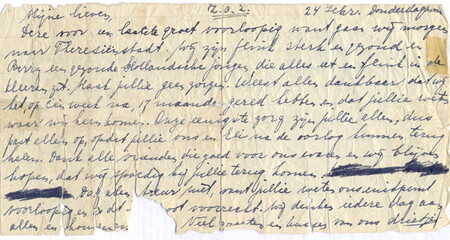 Mijne Lieven, 24 Febr. Donderdag
Deze voor een laatste groet voorloopig want gaan wij morgen
naar Theresienstadt. Wij zijn flink sterk en gezond en
een gezonde Hollandsche jongen die alles eet en flink in de
kleeren zit. Maakt jullie geen zorgen. Weest allen dankbaar dat wij
het, op één week na, 17 maanden gered hebben en dat jullie weten
waar wij heen komen. Onze eenigste zorg zijn jullie allen, dus
past allen op, opdat jullie ons en na de oorlog kunnen terug
halen. Dank alle vrienden die goed voor ons waren en wij blijven
hopen, dat wij spoedig bij jullie terug komen.
Dag allen treur niet, want jullie weten ons eindpunt
voorloopig en dit is voorrecht. Wij denken iedere dag aan
allen en honderden
Veel groeten en kussen van ons drietjes